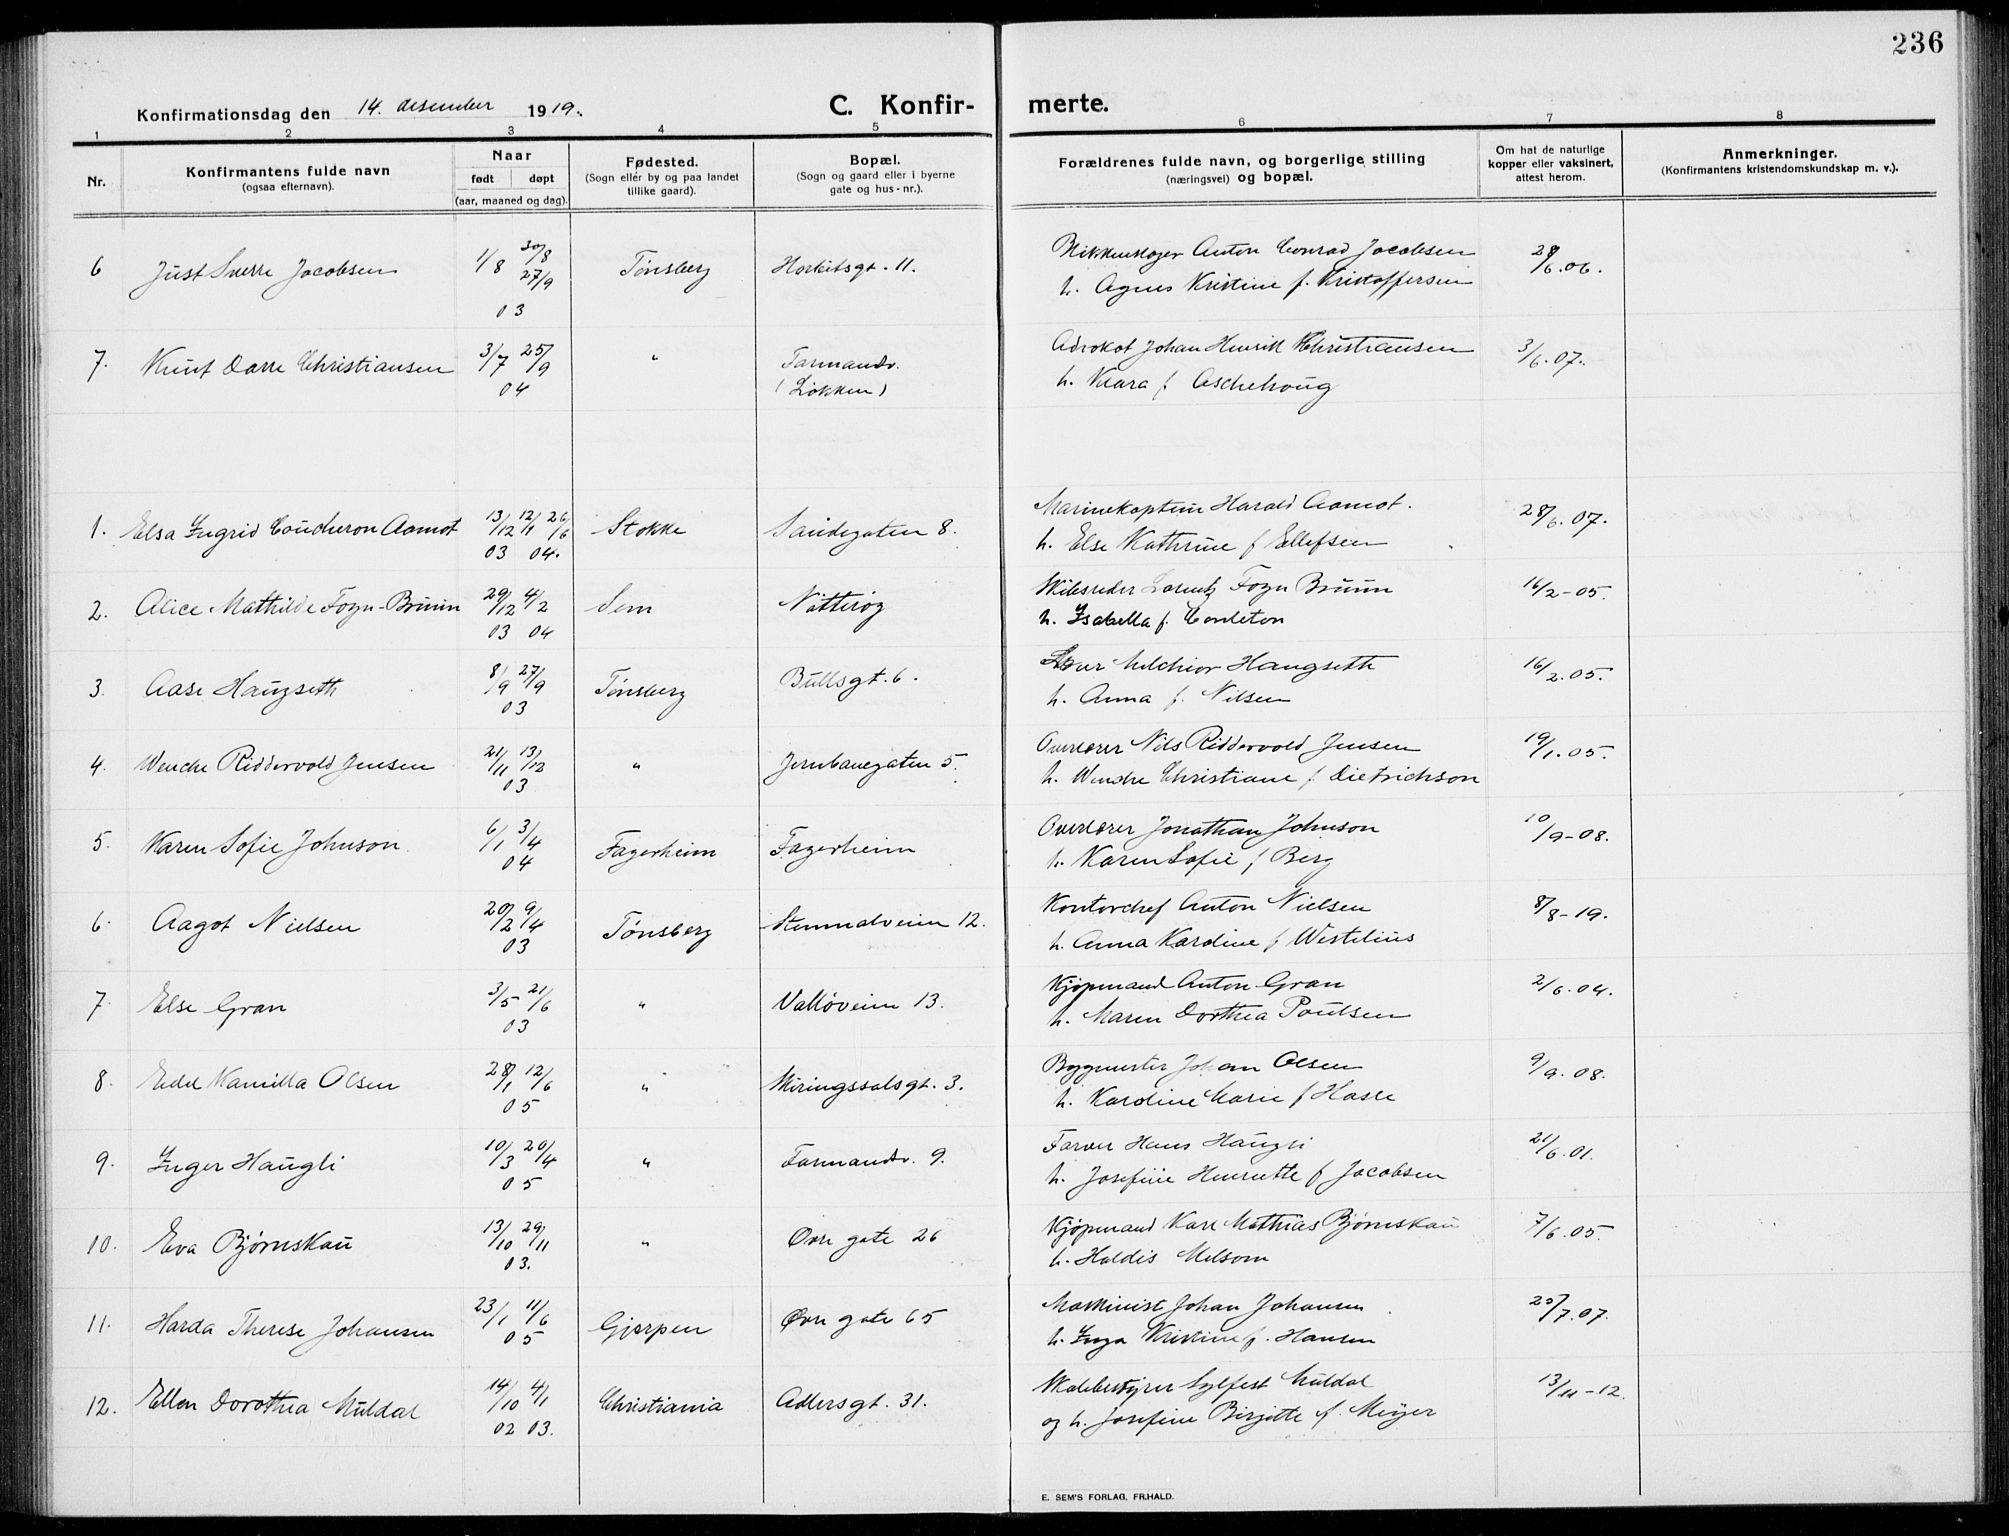 236
Konfirmationsdag den 14. desember 1919.
C. Konfir-
merte.
1 2 3 4 5 6 7 8
Nr.
Konfirmantens fulde navn
(ogsaa efternavn).
Naar
født døpt
(aar, maaned og dag).
Fødested.
(Sogn eller by og paa landet
tillike gaard).
Bopæl.
(Sogn og gaard eller i byerne
gate og hus-nr.).
Forældrenes fulde navn, og borgerlige stilling
(næringsvei) og bopæl.
Om hat de naturlige
kopper eller vaksinert,
attest herom.
Anmerkninger.
(Konfirmantens kristendomskundskap m. v.).
6 Just Sverre Jacobsen 1/8 30/8 27/9 03 Tønsberg 11. Anton Conrad Jacobsen 28/6.06.
h. Agnes Kristine f. Kristoffersen
7. Knut Darre Christiansen 3/7 25/9 04 " Farmandv. Advokat Johan Henrik Christiansen 3/6.07.
(Løkken) h. Klara f. Aschehoug
1. Elsa Ingrid Coucheron Aamot 13/12 03 12/1 26/6 04. Stokke 8. Marinekaptein Harald Aamot. 28/6.07.
h. Else Kathrine f Ellefsen
2. Alice Mathilde Fogn-Bruun 29/12 03 4/2 04 Sem Nøtterøy Skibsreder Lorentz Fogn Bruun 16/2-05.
h. Isabella f. Conleton
3. Aase Haugseth 8/9 27/9 03 Tønsberg Bullsgt. 6. Melchior Haugseth 16/2.05.
h. Anna f. Nilsen
4. Wenche Riddervold Jensen 21/11 13/12 03 " Jernbanegaten 5. Overlærer Nils Riddervold Jensen 19/1.05.
h. Wenche Christiane f Dietrichson
5. Karen Sofie Johnson 6/1 3/4 04 Fagerheim Fagerheim Overlærer Jonathan Johnson 10/9-08.
h. Karen Sofie f Berg
6. Aagot Nielsen 20/2 9/4 03 Tønsberg 12. Kontorchef Anton Nielsen 8/8-19.
h. Anna Karoline f Westelius
7. Else Gran 3/5 21/6 03 " Valløveien 13. Kjøpmand Anton Gran 2/6.04.
h. Maren Dorthea Poulsen
8. Edel Kamilla Olsen 28/1 12/6 05 " 3. Bygmester Johan Olsen 9/9.08.
h. Karoline Marie f Hasle
9. Inger Haugli 10/3 20/4 05 " Farmandv. 9. Farver Hans Haugli 21/6.01.
h. Josefine Henriette f Jacobsen
10. Eva Bjørnskau 13/10 29/11 03. " Øvre gate 26 Kjøpmand Karl Mathias Bjørnskau 7/6.05.
h. Haldis Melsom
11. Harda Therese Johansen 23/1 11/6 05 Gjerpen Øvre gate 65 Maskinist Johan Johansen 20/7.07.
h. Inga Kristine f. Hansen
12. Ellen Dorothea Muldal 14/10 02 4/1 03. Christiania Adlersgt. 31. Skolebestyrer Sylfest Muldal 13/11-12.
og h. Josefine Birgitte f. Meyer
E. SEM'S FORLAG, FR.HALD.